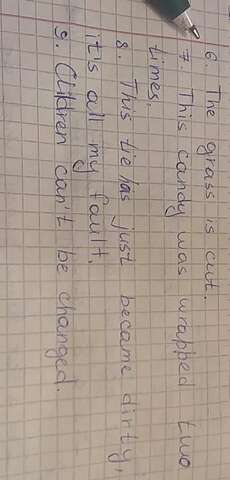 6. The grass is cut.
7. This candy was wrapped two
times.
8. This tie has just became dirty,
it's all my fault.
9. Children can't be changed.